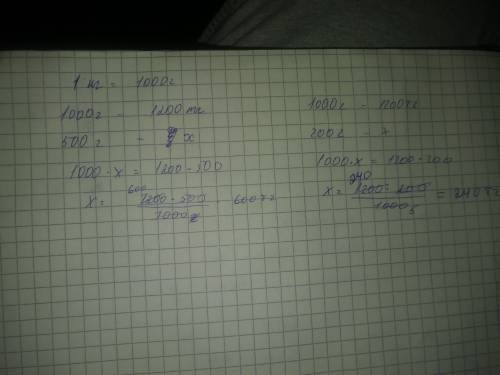 1 кг = 1000г
1000г - 1200 тг
500 г - x
1000 · x = 1200 · 500
600
x = 1200 · 500 / 1000 600тг
1000г - 1200тг
200г - x
1000 · x = 1200 · 200
240
x = 1200 · 200 / 1000 5 = 240 тг